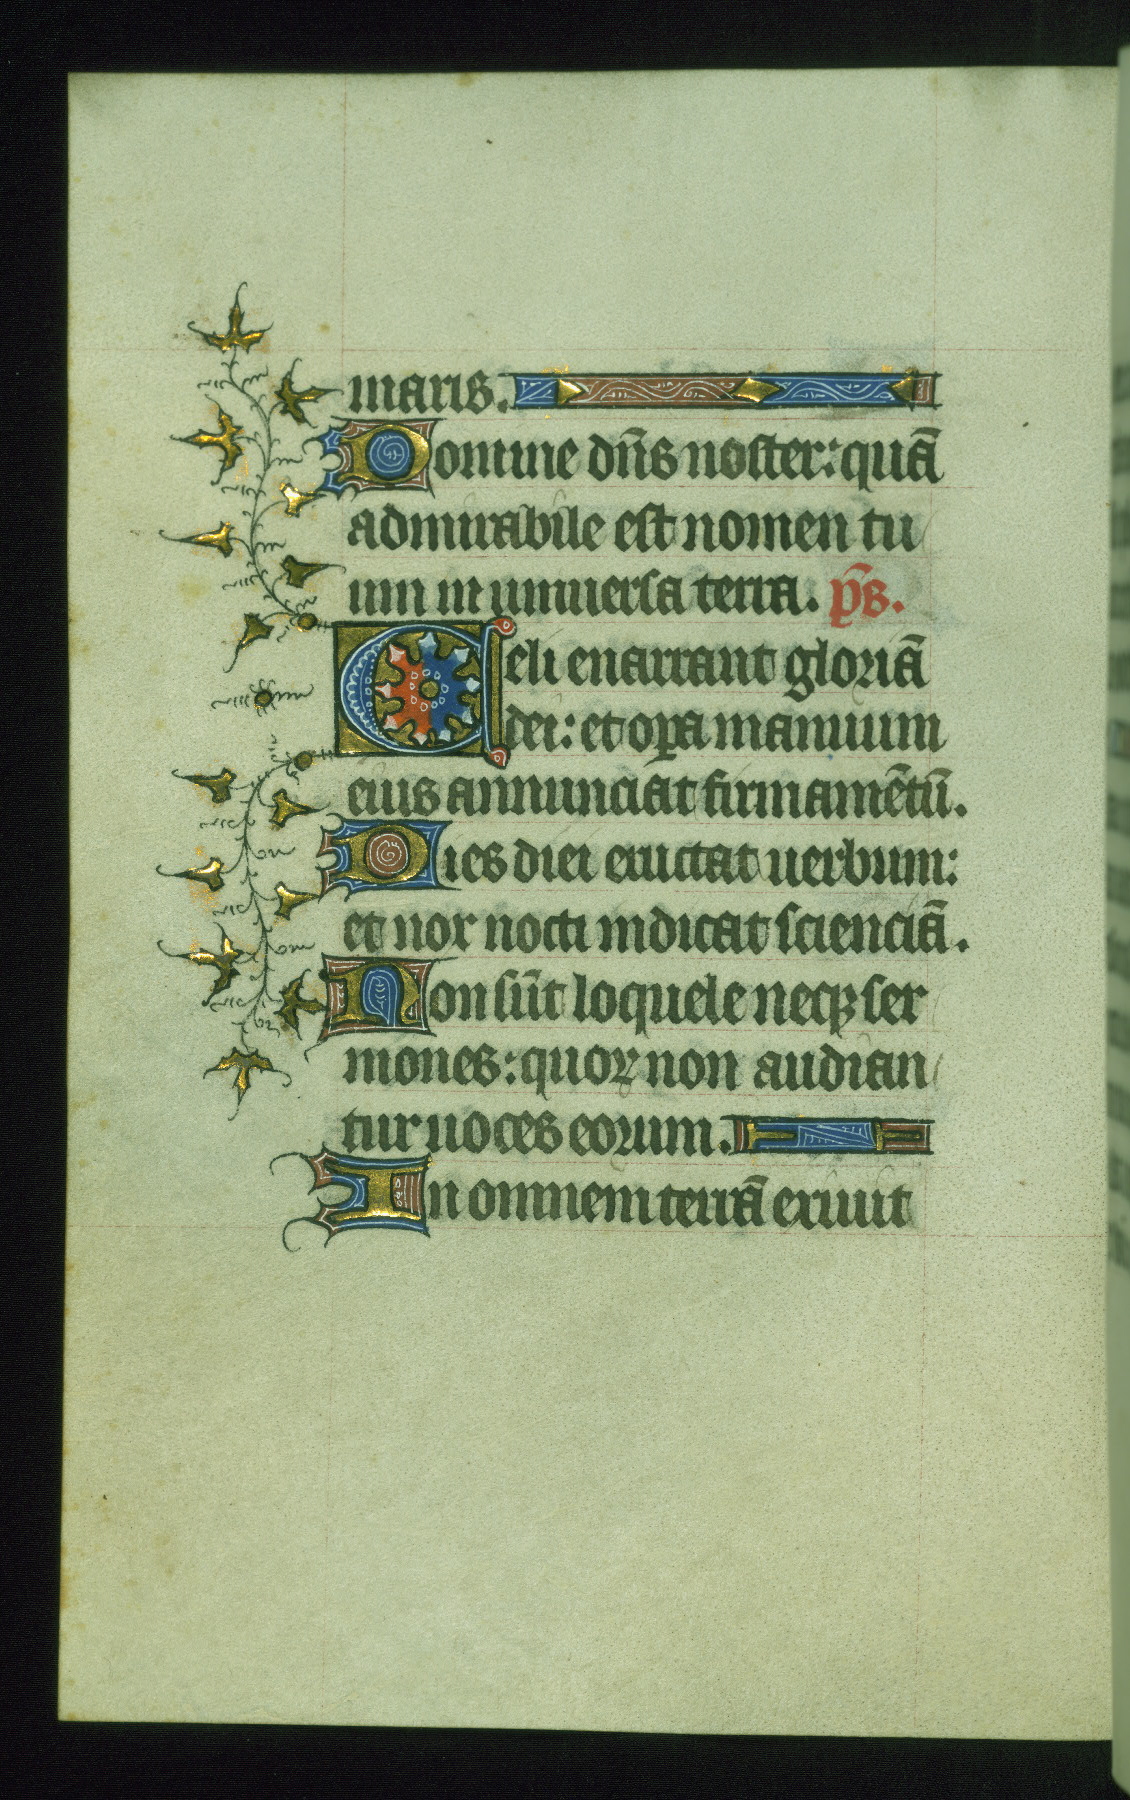 maris.
Domine dn̄s noster: quā
admirabile est nomen tu
um in uniuersa terra. p̄s.
Celi enarrant gloriā
dei: et oꝑa manuum
eius annunciāt firmamētū.
Dies diei eructat uerbum:
et nox nocti indicat scienciā.
Non sūt loquele neqꝫ ser
mones: quoꝝ non audian
tur uoces eorum.
In omnem terrā exiuit